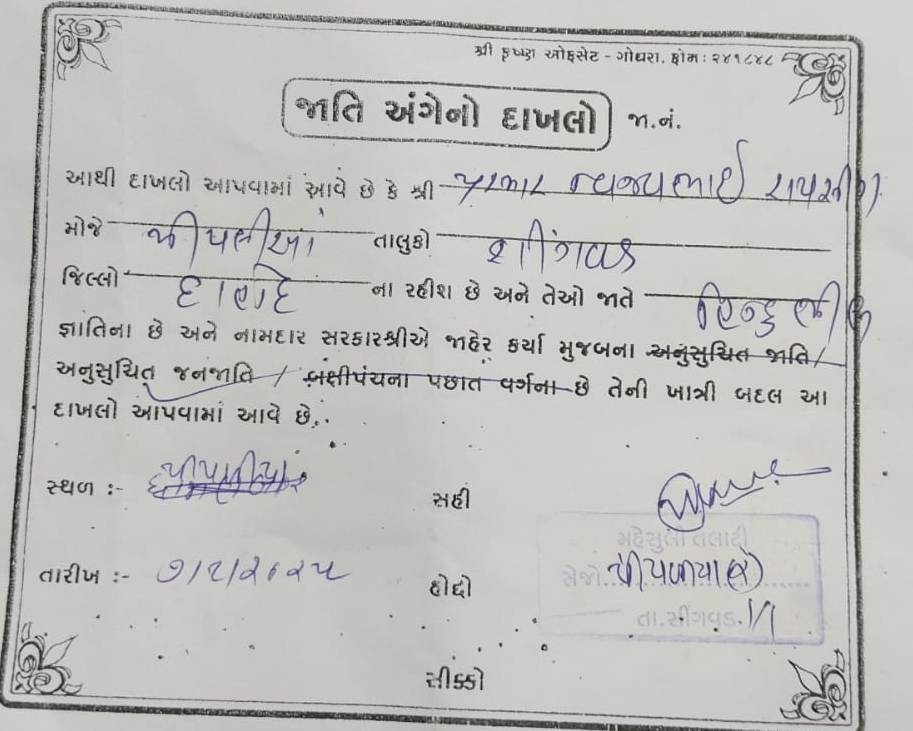 શ્રી કૃષ્ણ ઓફસેટ - ગોધરા. ફોન : ૨૪૧૮૪૮
જાતિ અંગેનો દાખલો જા.નં.
આથી દાખલો આપવામાં આવે છે કે શ્રી પરમાર
મોજે પીપલીયા તાલુકો શીંગવડ
જિલ્લો દાહોદ ના રહીશ છે અને તેઓ જાતે હિન્દુ ભીલ
જ્ઞાતિના છે અને નામદાર સરકારશ્રીએ જાહેર કર્યા મુજબના અનુસુચિત જાતિ/
અનુસુચિત જનજાતિ / બક્ષીપંચના પછાત વર્ગના છે તેની ખાત્રી બદલ આ
દાખલો આપવામાં આવે છે.
સ્થળ :-
સહી
મહેસુલી તલાટી
તારીખ :-
હોદ્દો
સેજો... પીપળીયા
તા.સીંગવડ.
સીક્કો